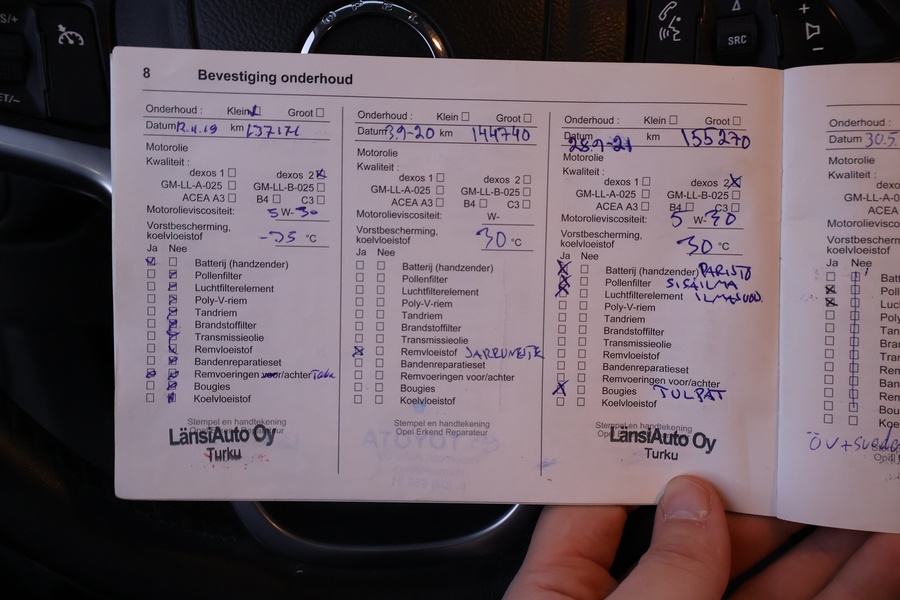 8 Bevestiging onderhoud
Onderhoud : Klein Groot
Datum 12.4.19 km 137171
Motorolie
Kwaliteit :
dexos 1 dexos 2
GM-LL-A-025 GM-LL-B-025
ACEA A3 B4 C3
Motorolieviscositeit: 5 W-30
Vorstbescherming,
koelvloeistof -25 °C
Ja Nee
Batterij (handzender)
Pollenfilter
Luchtfilterelement
Poly-V-riem
Tandriem
Brandstoffilter
Transmissieolie
Remvloeistof
Bandenreparatieset
Remvoeringen voor/achter
Bougies
Koelvloeistof
Stempel en handtekening
Opel Erkend Reparateur
LänsiAuto Oy
Turku
Onderhoud : Klein Groot
Datum 3.9-20 km 144740
Motorolie
Kwaliteit :
dexos 1 dexos 2
GM-LL-A-025 GM-LL-B-025
ACEA A3 B4 C3
Motorolieviscositeit: W-
Vorstbescherming,
koelvloeistof 30 °C
Ja Nee
Batterij (handzender)
Pollenfilter
Luchtfilterelement
Poly-V-riem
Tandriem
Brandstoffilter
Transmissieolie
Remvloeistof JARRUNESTE
Bandenreparatieset
Remvoeringen voor/achter
Bougies
Koelvloeistof
Stempel en handtekening
Opel Erkend Reparateur
Onderhoud : Klein Groot
Datum 28.9-21 km 155270
Motorolie
Kwaliteit :
dexos 1 dexos 2
GM-LL-A-025 GM-LL-B-025
ACEA A3 B4 C3
Motorolieviscositeit: 5 W-30
Vorstbescherming,
koelvloeistof 30 °C
Ja Nee
Batterij (handzender) PARISTO
Pollenfilter SISÄILMA
Luchtfilterelement ILMASUOD.
Poly-V-riem
Tandriem
Brandstoffilter
Transmissieolie
Remvloeistof
Bandenreparatieset
Remvoeringen voor/achter
Bougies TULPAT
Koelvloeistof
Stempel en handtekening
LänsiAuto Oy
Turku
Onderhoud :
Datum 30.5
Motorolie
Kwaliteit :
Ja Nee
SRC